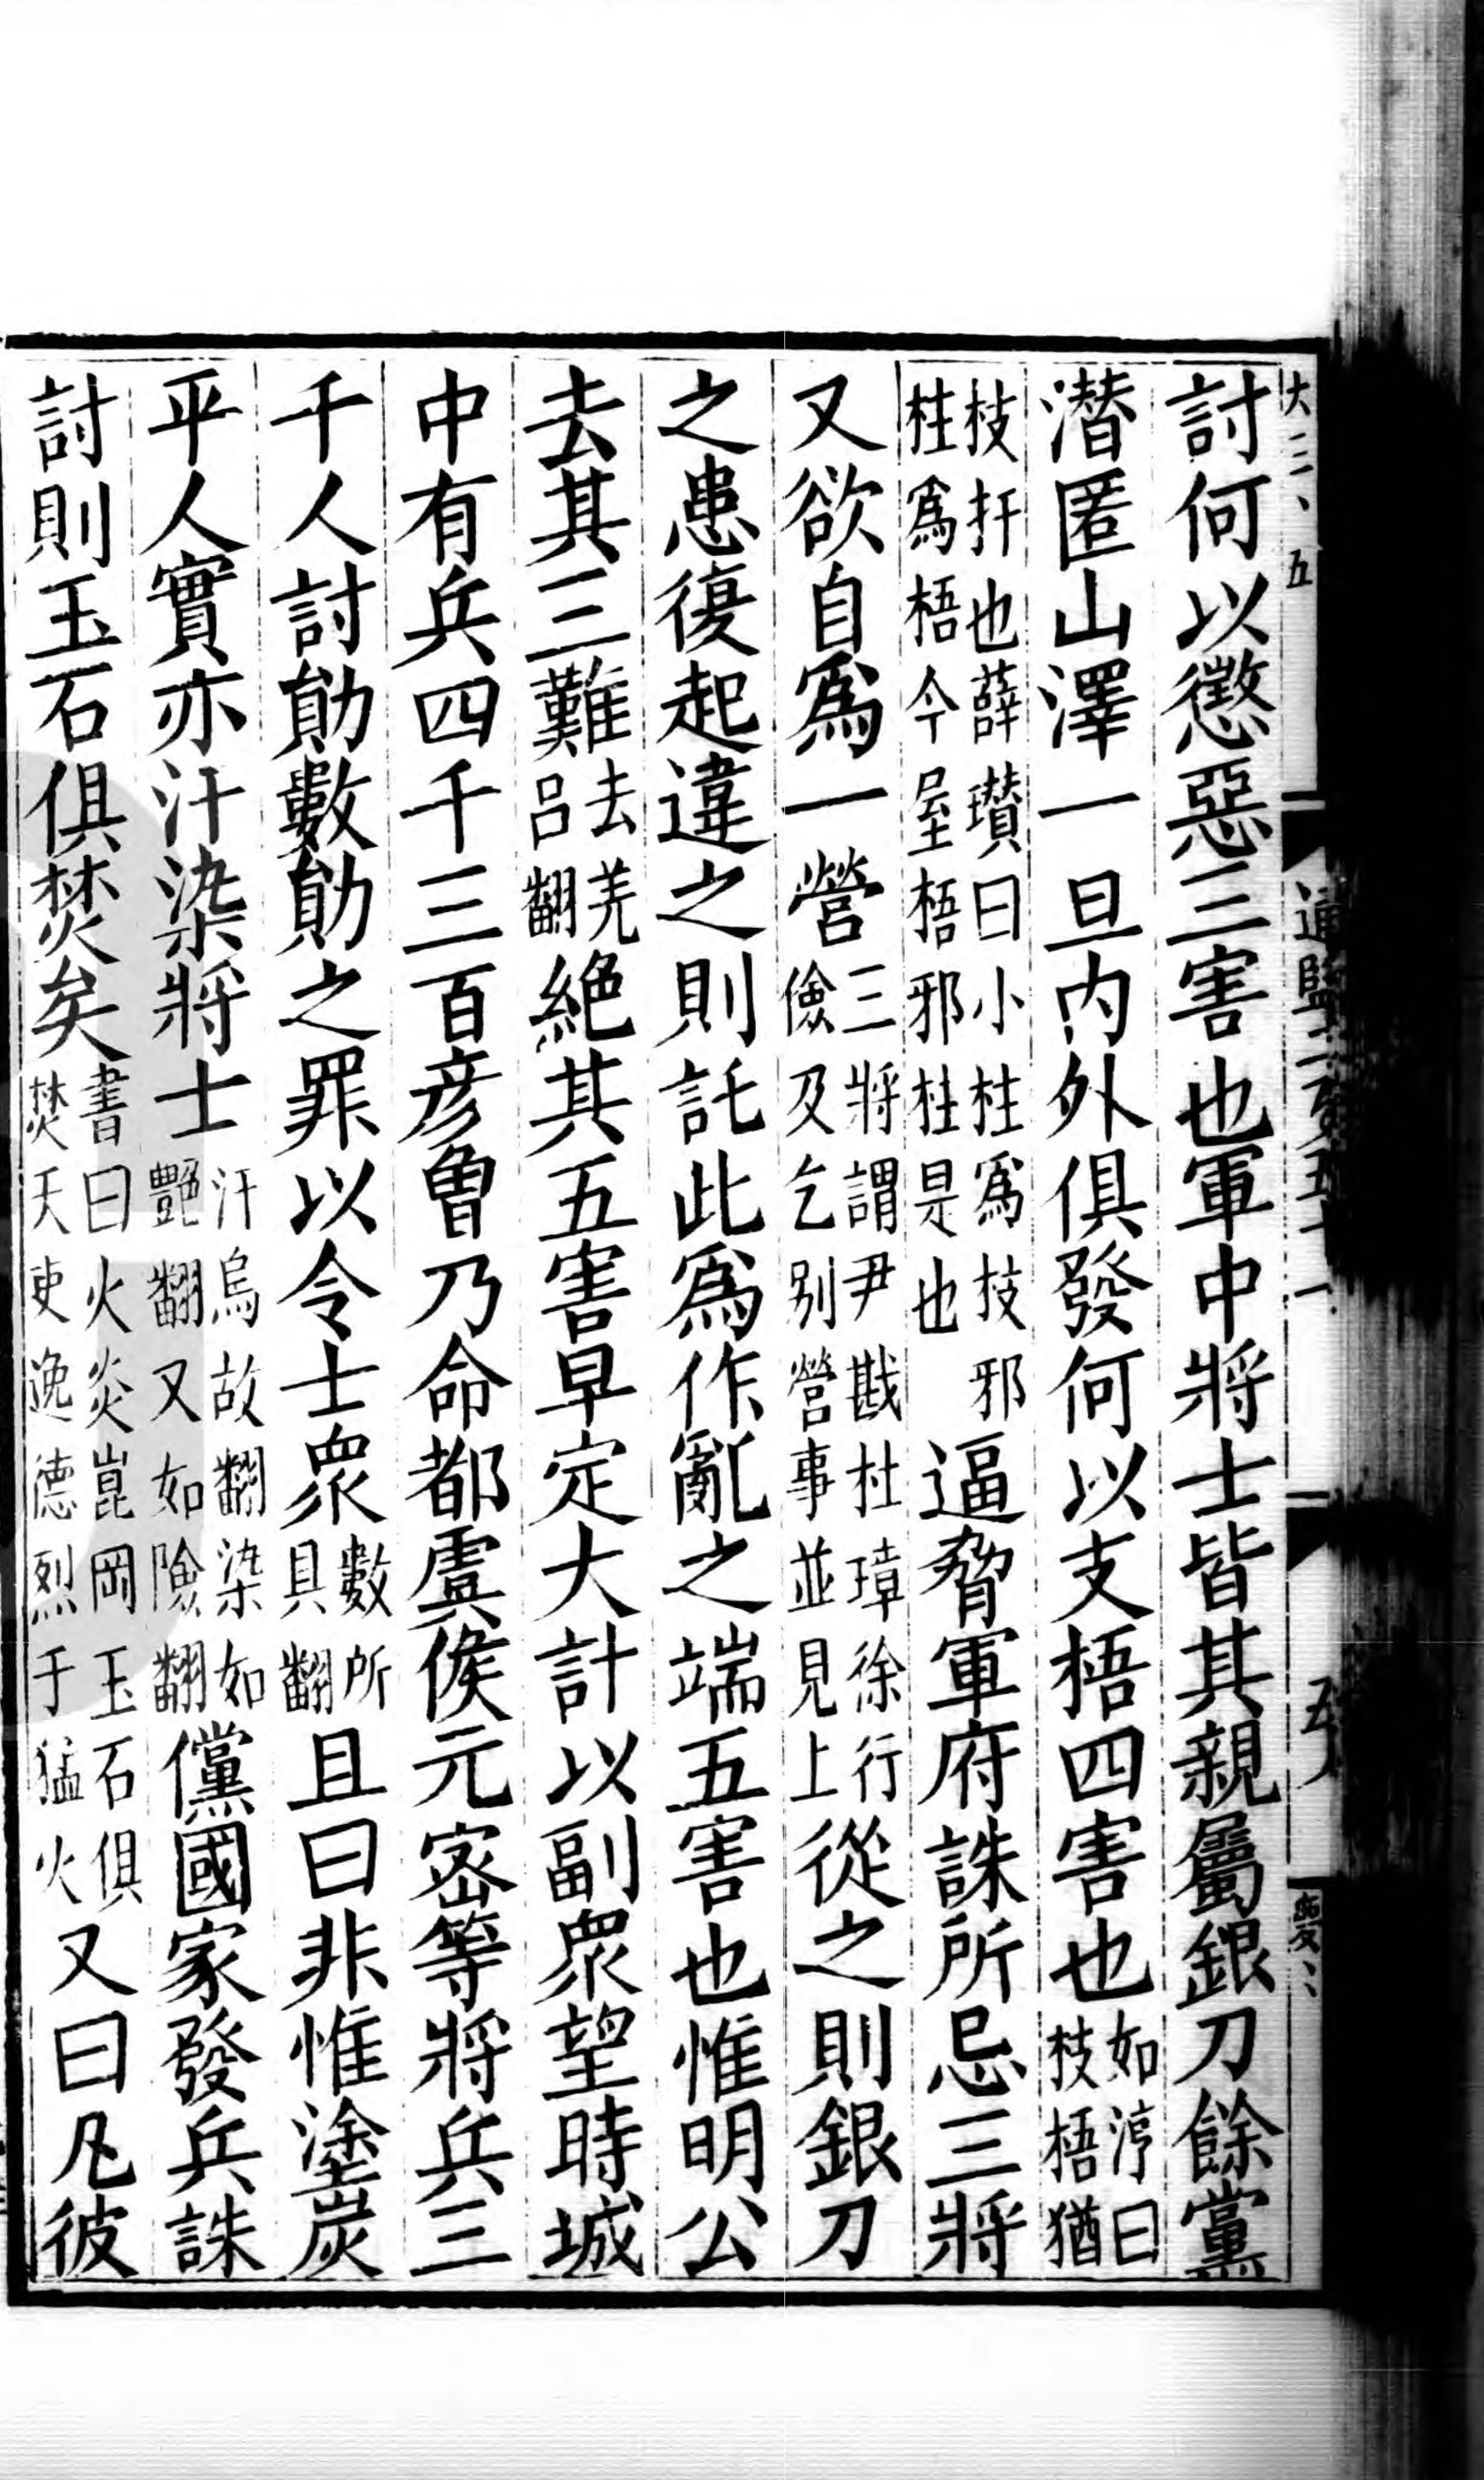 大三、五
討何以懲惡三害也軍中將士皆其親屬銀刀餘黨
潛匿山澤一旦内外俱發何以支梧四害也如淳曰枝梧猶
枝扞也薛瓉曰小柱爲枝邪柱爲梧今屋梧邪柱是也逼脅軍府誅所忌三將
又欲自爲一營三將謂尹戡杜璋徐行儉及乞别營事並見上從之則銀刀
之患復起違之則託此爲作亂之端五害也惟明公
去其三難去羌吕翻絶其五害早定大計以副衆望時城
中有兵四千三百彦曾乃命都虞侯元密等將兵三
千人討勛數勛之罪以令士衆數所具翻且曰非惟塗炭
平人實亦汙染將士汙烏故翻染如艷翻又如險翻儻國家發兵誅
討則玉石俱焚矣書曰火炎崑岡玉石俱焚天吏逸德烈于猛火又曰凡彼